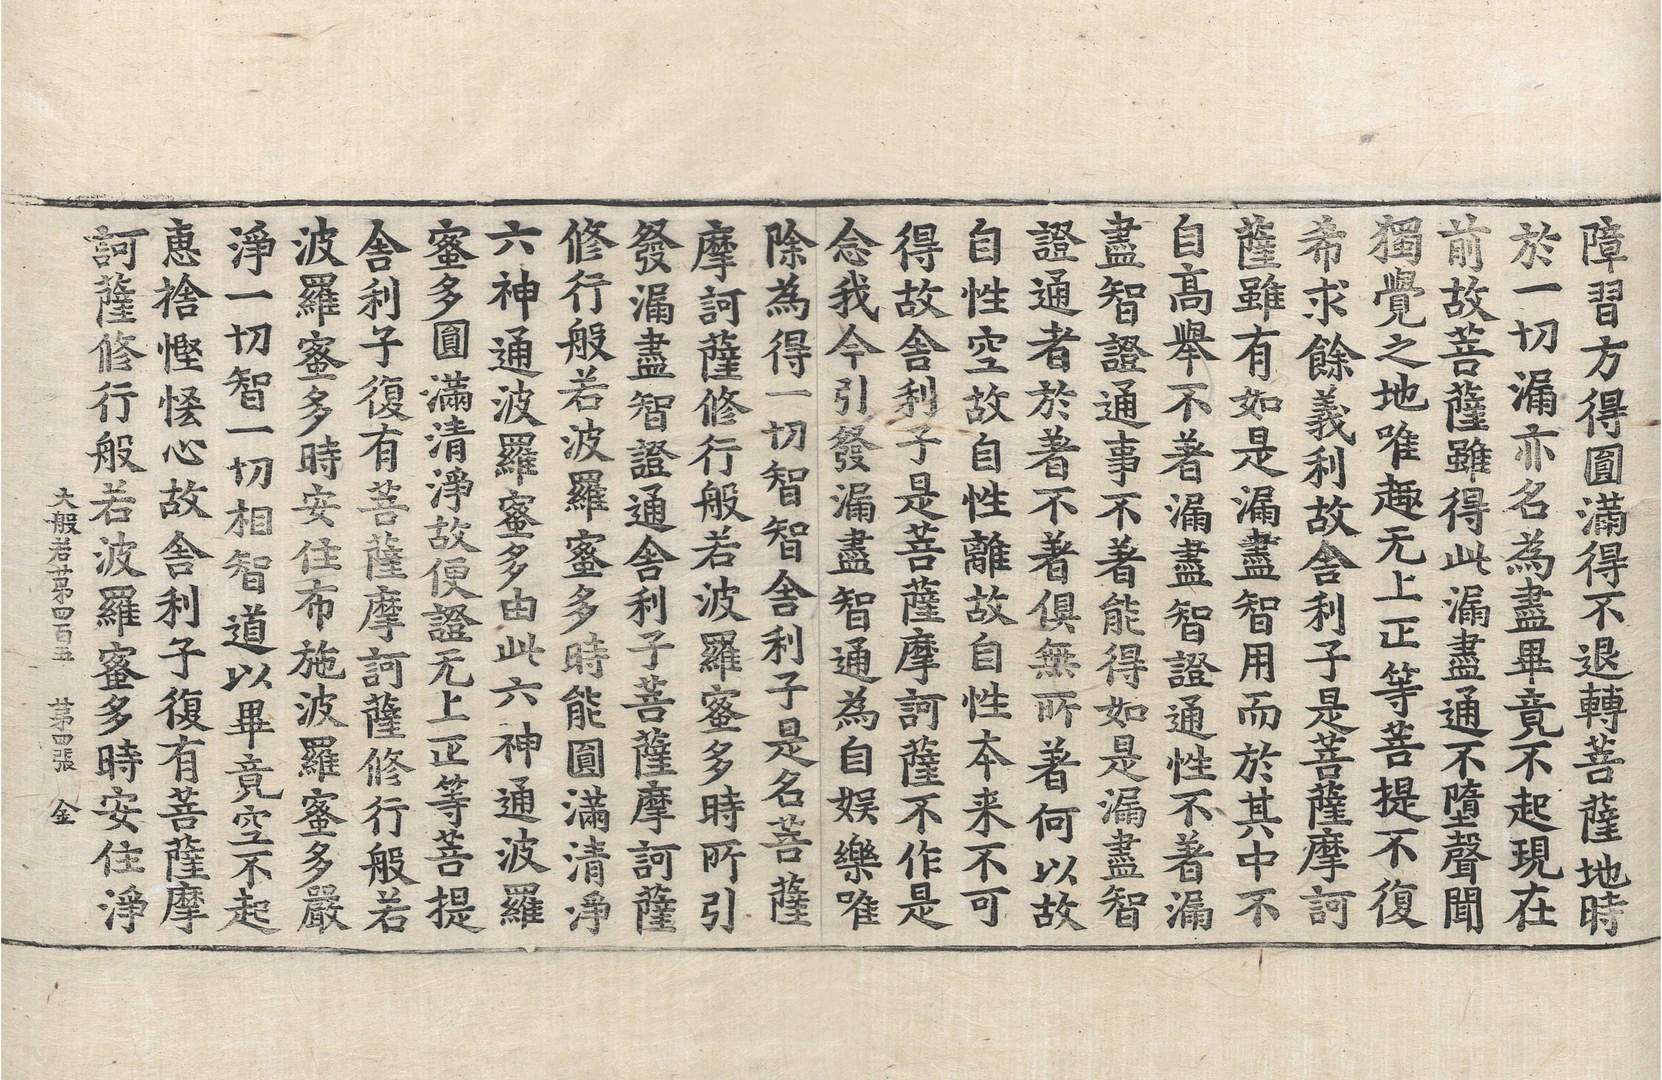 障習方得圓滿得不退轉菩薩地時
於一切漏亦名為盡畢竟不起現在
前故菩薩雖得此漏盡通不墮聲聞
獨覺之地唯趣无上正等菩提不復
希求餘義利故舍利子是菩薩摩訶
薩雖有如是漏盡智用而於其中不
自高舉不著漏盡智證通性不著漏
盡智證通事不著能得如是漏盡智
證通者於著不著俱無所著何以故
自性空故自性離故自性本来不可
得故舍利子是菩薩摩訶薩不作是
念我今引發漏盡智通為自娛樂唯
除為得一切智智舍利子是名菩薩
摩訶薩修行般若波羅蜜多時所引
發漏盡智證通舍利子菩薩摩訶薩
修行般若波羅蜜多時能圓滿清淨
六神通波羅蜜多由此六神通波羅
蜜多圓滿清淨故便證无上正等菩提
舍利子復有菩薩摩訶薩修行般若
波羅蜜多時安住布施波羅蜜多嚴
淨一切智一切相智道以畢竟空不起
惠捨慳悋心故舍利子復有菩薩摩
訶薩修行般若波羅蜜多時安住淨
大般若苐四百五 苐四張 金